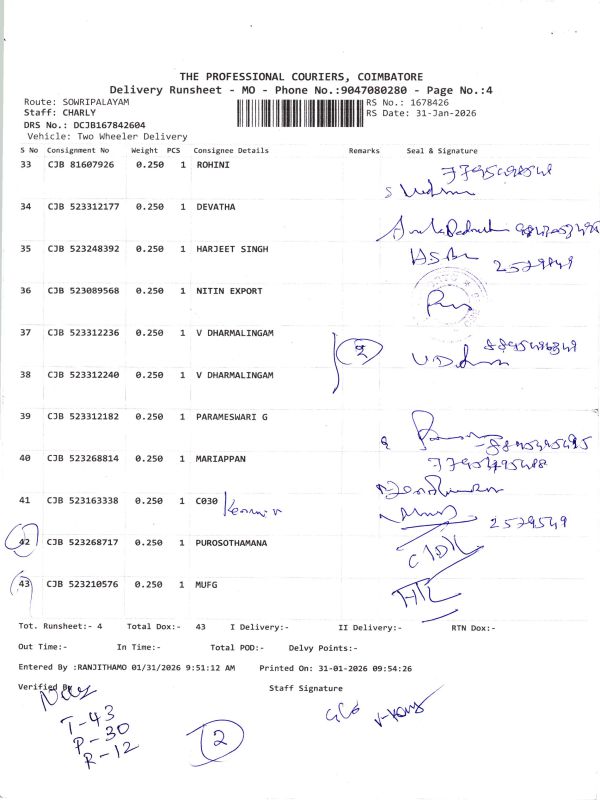 THE PROFESSIONAL COURIERS, COIMBATORE
Delivery Runsheet - MO - Phone No.:9047080280 - Page No.:4
Route: SOWRIPALAYAM RS No.: 1678426
Staff: CHARLY RS Date: 31-Jan-2026
DRS No.: DCJB167842604
Vehicle: Two Wheeler Delivery
S No Consignment No Weight PCS Consignee Details Remarks Seal & Signature
33 CJB 81607926 0.250 1 ROHINI
34 CJB 523312177 0.250 1 DEVATHA
35 CJB 523248392 0.250 1 HARJEET SINGH
36 CJB 523089568 0.250 1 NITIN EXPORT
37 CJB 523312236 0.250 1 V DHARMALINGAM
38 CJB 523312240 0.250 1 V DHARMALINGAM
39 CJB 523312182 0.250 1 PARAMESWARI G
40 CJB 523268814 0.250 1 MARIAPPAN
41 CJB 523163338 0.250 1 C030
2579549
42 CJB 523268717 0.250 1 PUROSOTHAMANA
43 CJB 523210576 0.250 1 MUFG
Tot. Runsheet:- 4 Total Dox:- 43 I Delivery:- II Delivery:- RTN Dox:-
Out Time:- In Time:- Total POD:- Delvy Points:-
Entered By :RANJITHAMO 01/31/2026 9:51:12 AM Printed On: 31-01-2026 09:54:26
Verified By Staff Signature
T-43
P-30
R-12
2